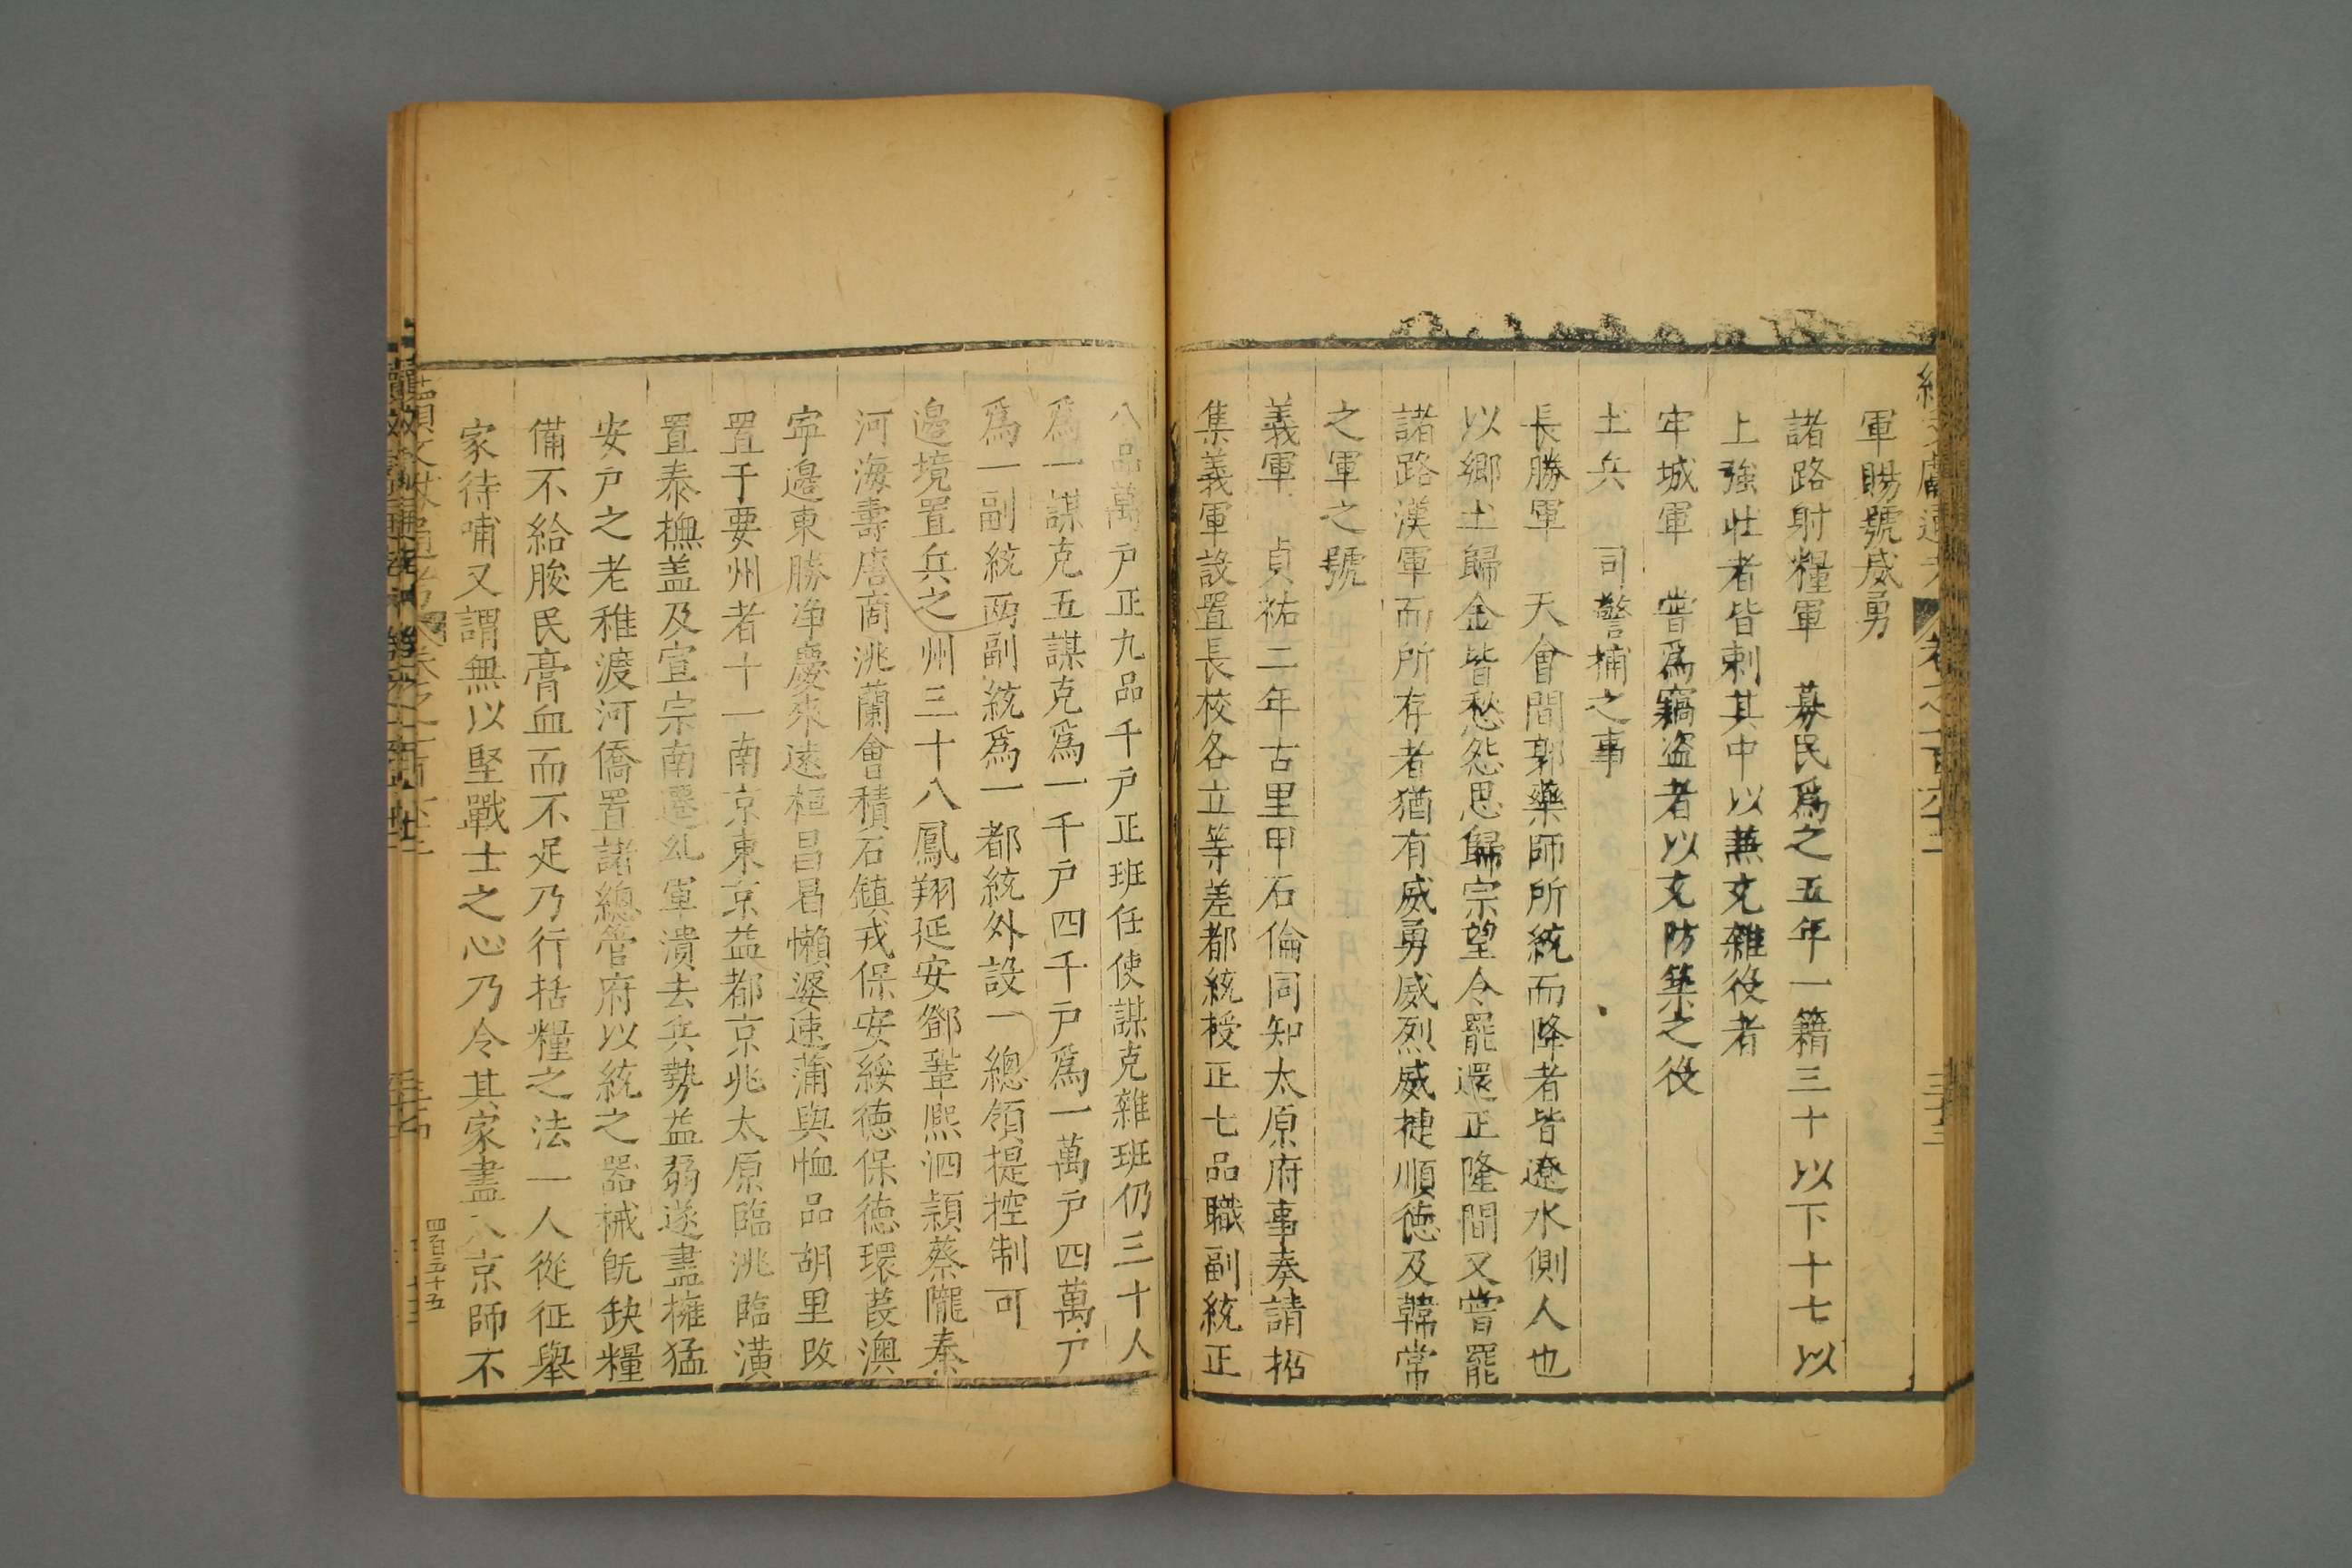 軍賜號威勇
諸路射糧軍　募民爲之五年一籍三十以下十七以
上強壯者皆刺其中以蕪充雜役者
牢城軍　甞爲竊盜者以充防築之役
土兵　司警捕之事
長勝軍　天會間郭藥師所統而降者皆遼水側人也
以鄉土歸金皆愁怨思歸宗望令罷還正隆間又甞罷
諸路漢軍而所存者猶有威勇威烈威㨗順德及韓常
之軍之號
義軍　貞祐二年古里甲石倫同知太原府事奏請招
集義軍設置長校各立等差都統授正七品職副統正
八品萬户正九品千户正班任使謀克雜班仍三十人
爲一謀克五謀克爲一千户四千户爲一萬户四萬户
爲一副統兩副統爲一都統外設一總領提控制可
邊境置兵之州三十八鳳翔延安鄧鞏熈泗潁蔡隴秦
河海壽唐商洮蘭會積石鎮戎保安綏德保德環葭澳
寜邊東勝净慶來遠桓昌昌懶婆速蒲與恤品胡里改
置于要州者十一南京東京益都京兆太原臨洮臨潢
置泰撫盖及宣宗南遷乣軍潰去兵勢益弱遂盡擁猛
安户之老稚渡河僑置諸總管府以統之器械旣缺糧
備不給朘民膏血而不足乃行括糧之法一人從征舉
家待哺又謂無以堅戰士之心乃令其家盡入京師不
四百五十五